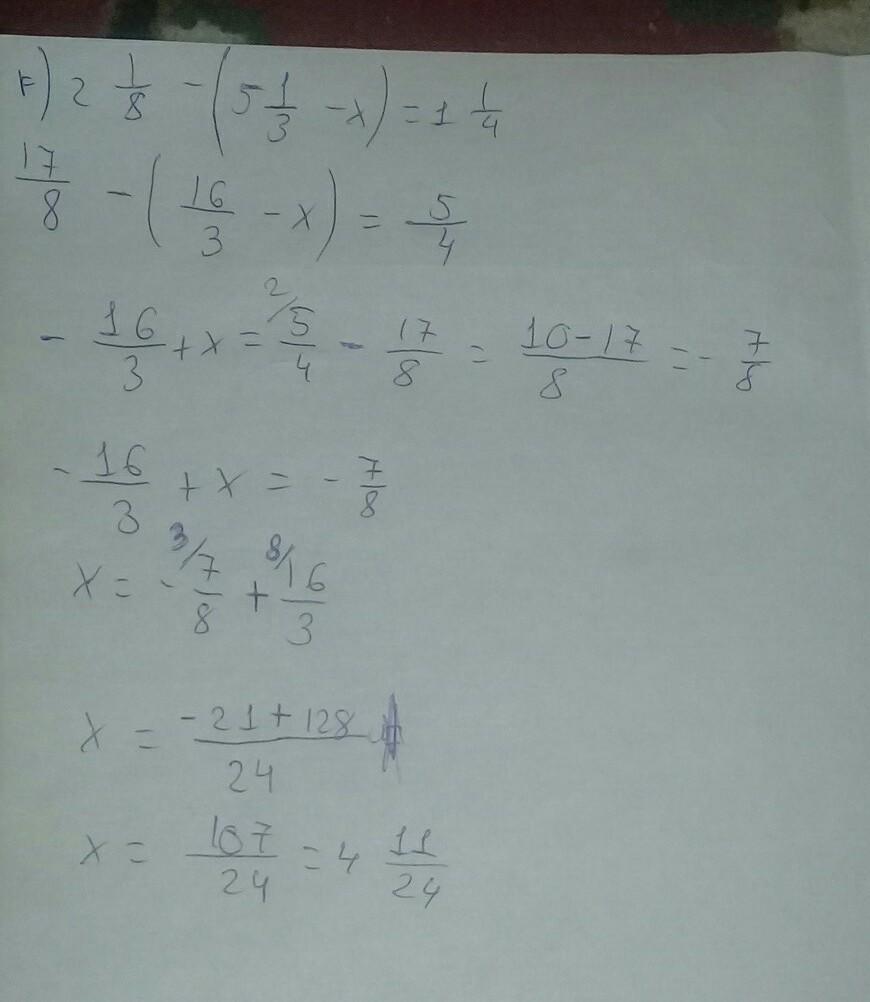 F) 2 1/8 - (5 1/3 - x) = 1 1/4
17/8 - (16/3 - x) = 5/4
- 16/3 + x = 2/ 5/4 - 17/8 = 10-17/8 = - 7/8
- 16/3 + x = - 7/8
x = - 3/ 7/8 + 8/ 16/3
x = -21+128/24
x = 107/24 = 4 11/24